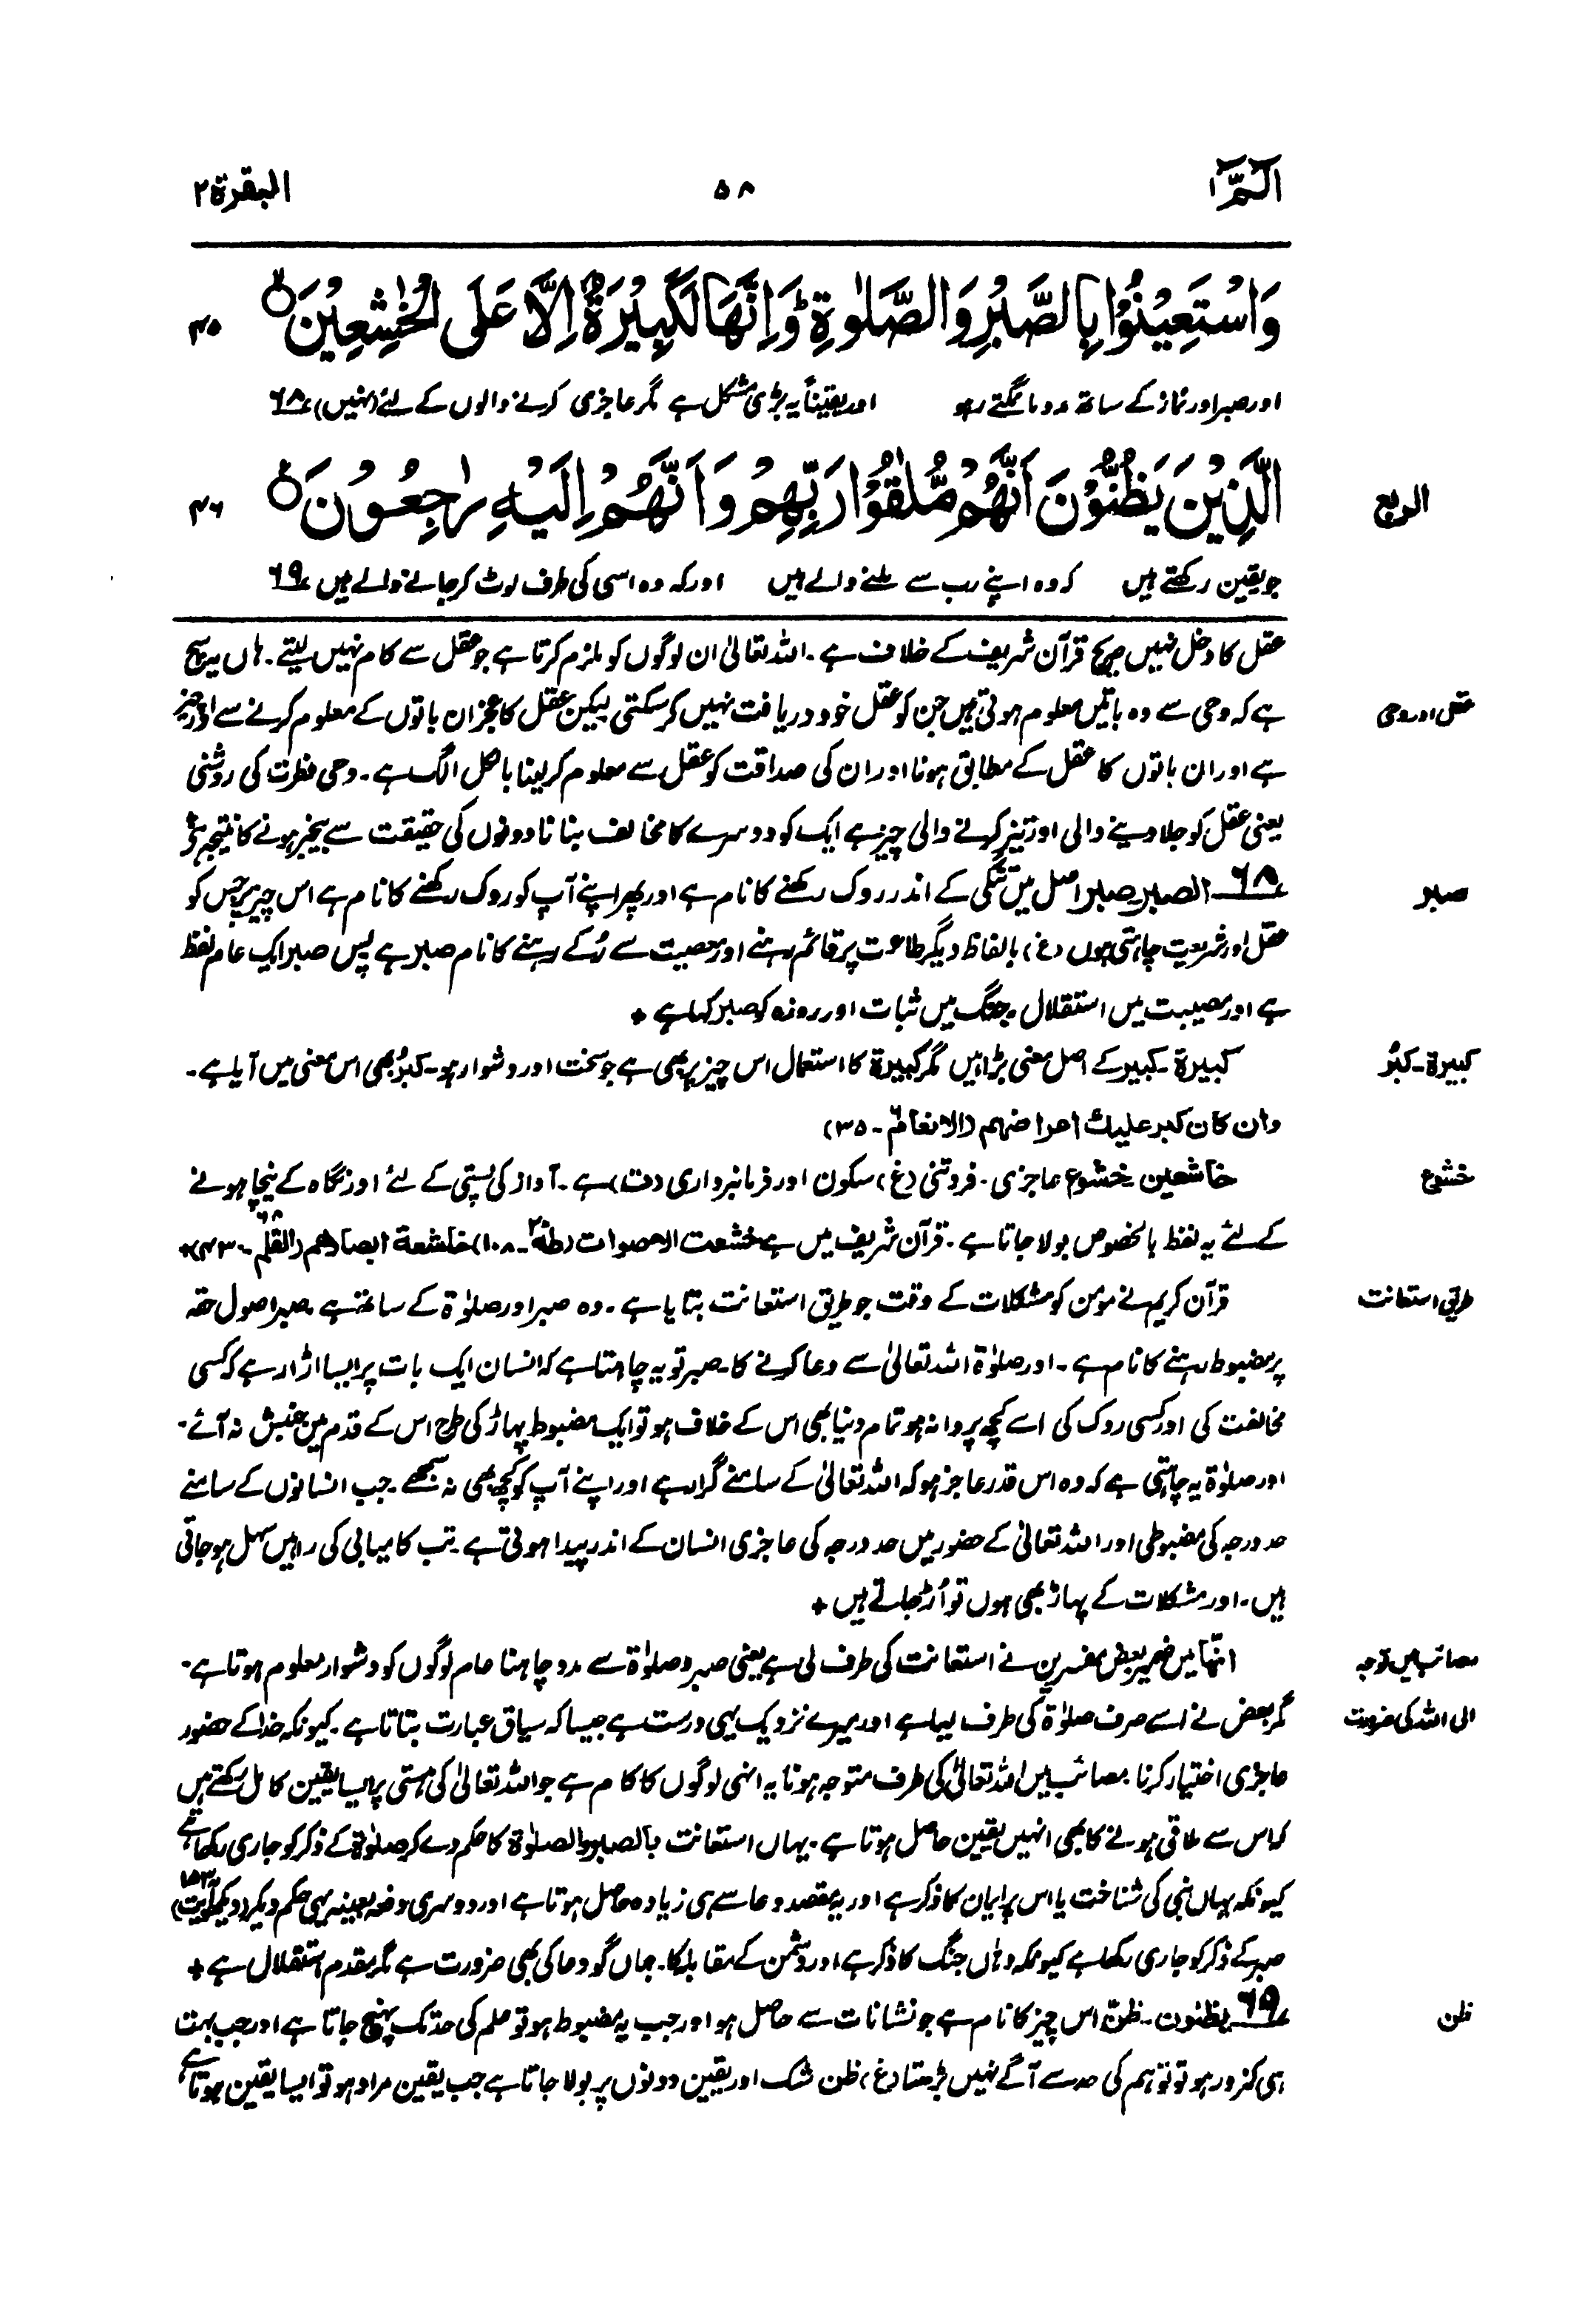 الٓمّٓ ۱
۵۸
البقرۃ ۲
وَاسْتَعِيْنُوْا بِالصَّبْرِ وَالصَّلٰوةِ ؕ وَاِنَّهَا لَكَبِيْرَةٌ اِلَّا عَلَى الْخٰشِعِيْنَ ۙ
۴۵
اور صبر اور نماز کے ساتھ مدد مانگتے رہو اور یقیناً یہ بڑی مشکل ہے مگر عاجزی کرنے والوں کے لئے (نہیں) ۶۸
الَّذِيْنَ يَظُنُّوْنَ اَنَّهُمْ مُّلٰقُوْا رَبِّهِمْ وَاَنَّهُمْ اِلَيْهِ رٰجِعُوْنَ ۧ
۴۶
الربع
جو یقین رکھتے ہیں کہ وہ اپنے رب سے ملنے والے ہیں اور کہ وہ اسی کی طرف لوٹ کر جانے والے ہیں ۶۹
عقل کا دخل نہیں صریح قرآن شریف کے خلاف ہے۔ اللہ تعالیٰ ان لوگوں کو ملزم کرتا ہے جو عقل سے کام نہیں لیتے۔ ہاں یہ سچ
عقل اور وحی
ہے کہ وحی سے وہ باتیں معلوم ہوتی ہیں جن کو عقل خود دریافت نہیں کر سکتی لیکن عقل کا عجز ان باتوں کے معلوم کرنے سے اور چیز
ہے اور ان باتوں کا عقل کے مطابق ہونا اور ان کی صداقت کو عقل سے معلوم کر لینا بالکل الگ ہے۔ وحی فطرت کی روشنی
یعنی عقل کو جلا دینے والی اور تیز کرنے والی چیز ہے ایک کو دوسرے کا مخالف بنانا دونوں کی حقیقت سے بیخبر ہونے کا نتیجہ ہے
صبر
۶۸ الصبر۔ صبر اصل میں تنگی کے اندر روک رکھنے کا نام ہے اور پھر اپنے آپ کو روک رکھنے کا نام ہے اس چیز پر جس کو
عقل اور شریعت چاہتی ہوں (غ) بالفاظ دیگر طاعت پر قائم رہنے اور معصیت سے رُکے رہنے کا نام صبر ہے پس صبر ایک عام لفظ
ہے اور مصیبت میں استقلال۔ جنگ میں ثبات اور روزہ کو صبر کہا ہے +
کبیرۃ۔ کبُر
کبیرۃ۔ کبیر کے اصل معنی بڑا ہیں مگر کبیرۃ کا استعمال اس چیز پر بھی ہے جو سخت اور دشوار ہو۔ کبُر بھی اس معنی میں آیا ہے۔
وان کان کبر علیک اعراضہم (الانعام ۶۔ ۳۵)
خشوع
خاشعین۔ خشوع عاجزی۔ فروتنی (غ) سکون اور فرمانبرداری (ت) ہے۔ آواز کی پستی کے لئے اور نگاہ کے نیچا ہونے
کے لئے یہ لفظ بالخصوص بولا جاتا ہے۔ قرآن شریف میں ہے خشعت الاصوات (طٰہٰ ۲۰۔ ۱۰۸) خاشعۃ ابصارہم (القلم ۶۸۔ ۴۳) +
طریق استعانت
قرآن کریم نے مومن کو مشکلات کے وقت جو طریق استعانت بتایا ہے۔ وہ صبر اور صلوٰۃ کے ساتھ ہے۔ صبر اصول حقہ
پر مضبوط رہنے کا نام ہے۔ اور صلوٰۃ اللہ تعالیٰ سے دعا کرنے کا۔ صبر تو یہ چاہتا ہے کہ انسان ایک بات پر ایسا اڑا رہے کہ کسی
مخالفت کی اور کسی روک کی اسے کچھ پروا نہ ہو تمام دنیا بھی اس کے خلاف ہو تو ایک مضبوط پہاڑ کی طرح اس کے قدم میں جنبش نہ آئے۔
اور صلوٰۃ یہ چاہتی ہے کہ وہ اس قدر عاجز ہو کہ اللہ تعالیٰ کے سامنے گرا رہے اور اپنے آپ کو کچھ بھی نہ سمجھے۔ جب انسانوں کے سامنے
حد درجہ کی مضبوطی اور اللہ تعالیٰ کے حضور میں حد درجہ کی عاجزی انسان کے اندر پیدا ہوتی ہے۔ تب کامیابی کی راہیں سہل ہو جاتی
ہیں۔ اور مشکلات کے پہاڑ بھی ہوں تو اُڑ جاتے ہیں +
مصائب میں توجہ
انّھا میں ضمیر بعض مفسرین نے استعانت کی طرف لی ہے یعنی صبر و صلوٰۃ سے مدد چاہنا عام لوگوں کو دشوار معلوم ہوتا ہے۔
الی اللہ کی ضرورت
مگر بعض نے اسے صرف صلوٰۃ کی طرف لیا ہے اور میرے نزدیک یہی درست ہے جیسا کہ سیاق عبارت بتاتا ہے۔ کیونکہ خدا کے حضور
عاجزی اختیار کرنا۔ مصائب میں اللہ تعالیٰ کی طرف متوجہ ہونا یہ انہی لوگوں کا کام ہے جو اللہ تعالیٰ کی ہستی پر ایسا یقین کامل رکھتے ہیں
کہ اس سے ملاقی ہونے کا بھی انہیں یقین حاصل ہوتا ہے۔ یہاں استعانت بالصبر والصلوٰۃ کا حکم دے کر صلوٰۃ کے ذکر کو جاری رکھا ہے
کیونکہ یہاں نبی کی شناخت یا اس پر ایمان کا ذکر ہے اور یہ مقصد دعا سے ہی زیادہ حاصل ہوتا ہے اور دوسری دفعہ بعینہ یہی حکم دیکر (دیکھو آیت ۱۵۳)
صبر کے ذکر کو جاری رکھا ہے کیونکہ وہاں جنگ کا ذکر ہے اور دشمن کے مقابلہ کا۔ جہاں گو دعا کی بھی ضرورت ہے مگر مقدم استقلال ہے +
ظن
۶۹ یظنون۔ ظنّ اس چیز کا نام ہے جو نشانات سے حاصل ہو اور جب یہ مضبوط ہو تو علم کی حد تک پہنچ جاتا ہے اور جب بہت
ہی کمزور ہو تو توہم کی حد سے آگے نہیں بڑھتا (غ) ظن شک اور یقین دونوں پر بولا جاتا ہے جب یقین مراد ہو تو ایسا یقین ہوتا ہے